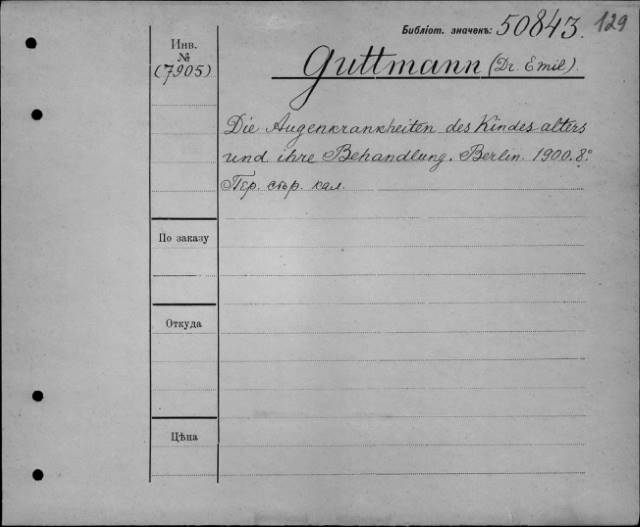 Библіот. значекъ: 50843. 129
Инв.
№
(7905)
Guttmann (Dr. Emil)
Die Augenkrankheiten des Kindesalters
und ihre Behandlung. Berlin. 1900. 8.°
Пер. стр. кал.
По заказу
Откуда
Цѣна